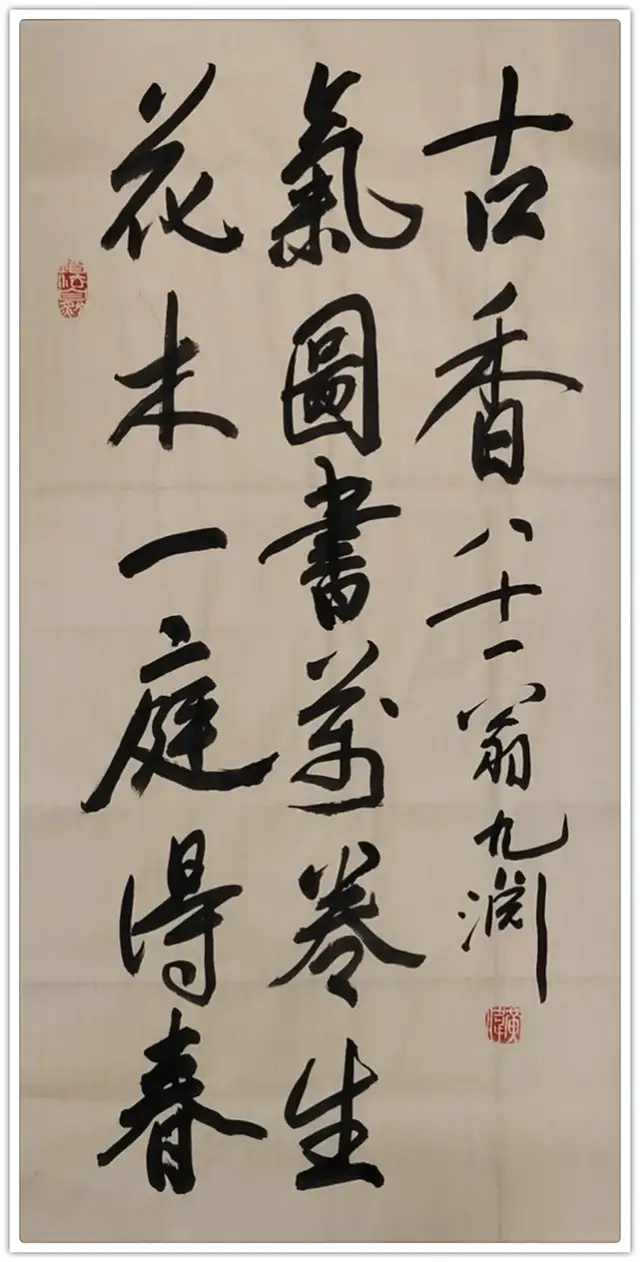 花木一庭得春
氣圖書萬卷生
古香八十一翁九渊